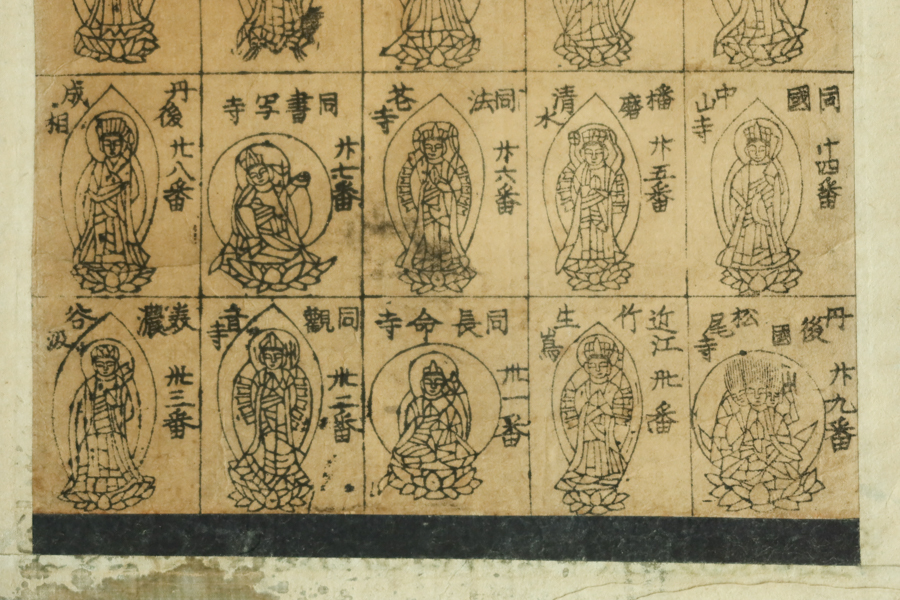 同國中山寺
廿四番
播磨清水
廿五番
同法花寺
廿六番
同書写寺
廿七番
丹後成相
廿八番
丹後國松尾寺
廿九番
近江竹生嶌
卅番
同長命寺
卅一番
同觀音寺
卅二番
美濃谷汲
卅三番